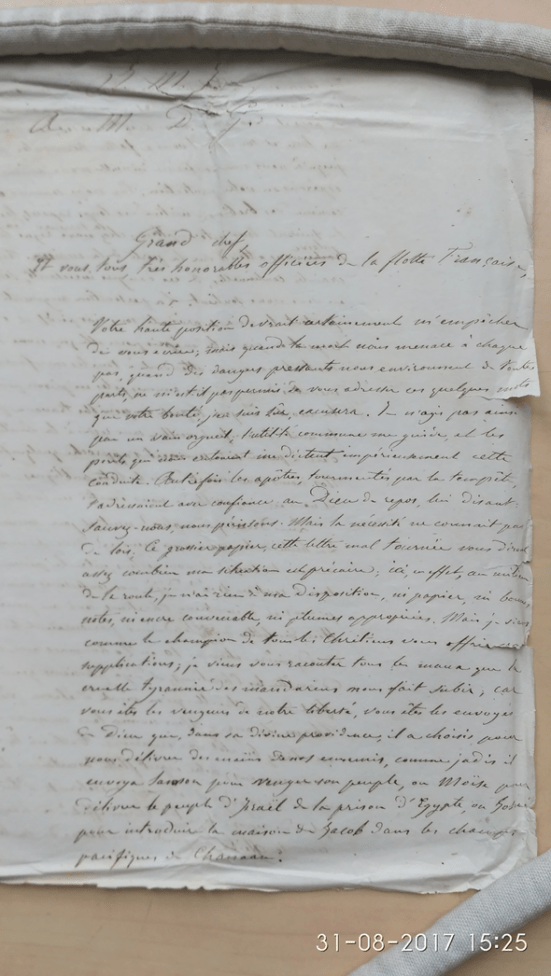 Grand chef,
Et vous, tous, très honorables officiers de la flotte Française,
Votre haute position devrait certainement m'empêcher
de vous écrire; mais quand la mort nous menace à chaque
pas, quand des dangers pressants nous environnent de toutes
parts, ne m'est il pas permis de vous adresser ces quelques mots
que votre bonté, j'en suis sûr, excusera. Je n'agis pas ainsi
par un vain orgueil, l'utilité commune me guide, et les
périls qui nous entourent me dictent impérieusement cette
conduite. Autrefois les apôtres, tourmentés par la tempête,
s'adressaient avec confiance au Dieu de repos, lui disant
sauvez-nous, nous périssons. Mais la nécessité ne connait pas
de lois. Ce grossier papier, cette lettre mal tournée vous diront
assez combien ma situation est précaire; ici, en effet, au milieu
de la route, je n'ai rien à ma disposition, ni papier, ni
ni encre convenable, ni plumes appropriées. Mais je viens
comme le champion de tous les Chrétiens vous offrir
supplications; je viens vous raconter tous les maux que la
cruelle tyrannie des mandarins nous fait subir; car
vous êtes les vengeurs de notre liberté, vous êtes les envoyés
de Dieu que, dans sa divine providence, il a choisis, pour
nous délivrer des mains de nos ennemis, comme jadis il
envoya pour venger son peuple, ou Moïse pour
délivrer le peuple d'Israël de la prison d'Egypte, ou
pour introduire la maison de Jacob dans les champs
pacifiques de Chanaan.
31-08-2017 15:25